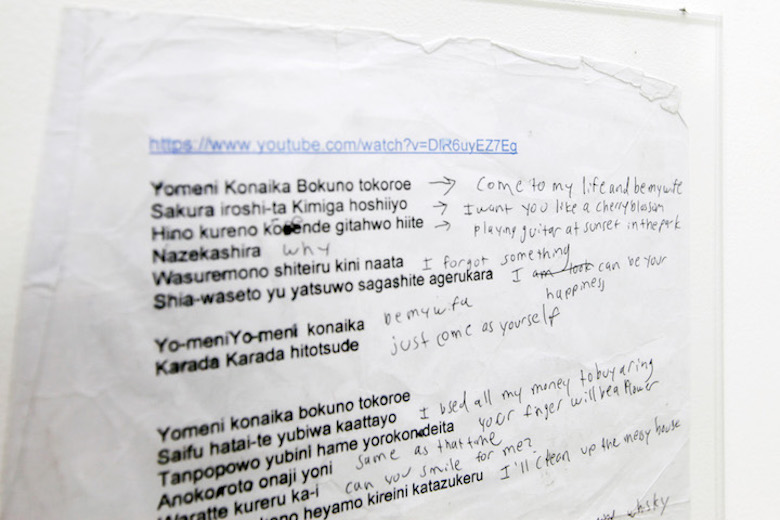 https://www.youtube.com/watch?v=DlR6uyEZ7Eg
Yomeni Konaika Bokuno tokoroe → Come to my life and be my wife
Sakura iroshi-ta Kimiga hoshiiyo → I want you like a cherry blossom
Hino kureno gitahwo hiite → playing guitar at sunset in the park
Nazekashira why
Wasuremono shiteiru kini naata I forgot something
Shia-waseto yu yatsuwo sagashite agerukara I am look can be your
happiness
Yo-meniYo-meni konaika be my wife
Karada Karada hitotsude just come as yourself
Yomeni konaika bokuno tokoroe
Saifu hatai-te yubiwa kaattayo I used all my money to buy a ring
Tanpopowo yubini hame yorokondeita your finger will be a flower
Anokoroto onaji yoni same as that time
Waratte kureru ka-i can you smile for me?
heyamo kireini katazukeru I'll clean up the messy house